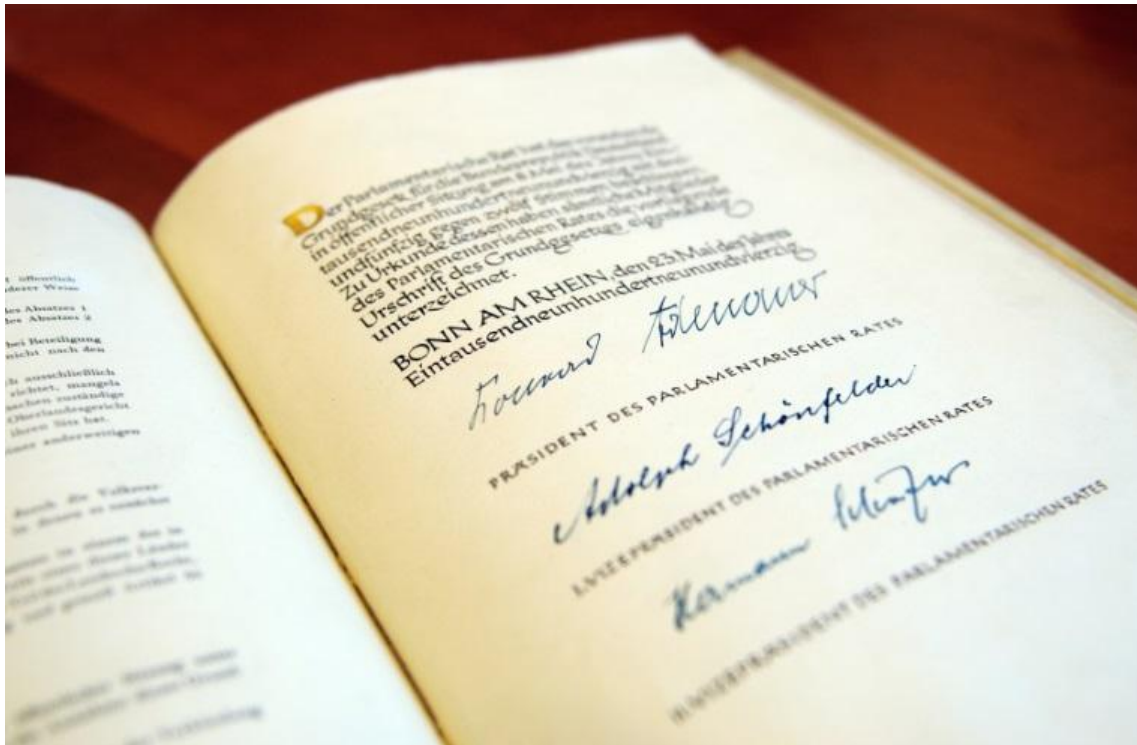 öffentlich
Weise
des Absatzes 1
des Absatzes 2
bei Beteiligung
nicht nach den
ausschließlich
richtet, mangels
zuständige
Oberlandesgericht
ihren Sitz hat.
anderweitigen
durch die Volksver-
Der Parlamentarische Rat hat das vorstehende
Grundgesetz für die Bundesrepublik Deutschland
in öffentlicher Sitzung am 8. Mai des Jahres Ein-
tausendneunhundertneunundvierzig mit drei-
undfünfzig gegen zwölf Stimmen beschlossen.
Zu Urkunde dessen haben sämtliche Mitglieder
des Parlamentarischen Rates die vorliegende
Urschrift des Grundgesetzes eigenhändig
unterzeichnet.
BONN AM RHEIN, den 23. Mai des Jahres
Eintausendneunhundertneunundvierzig
Konrad Adenauer
PRÄSIDENT DES PARLAMENTARISCHEN RATES
Adolph Schönfelder
I. VIZEPRÄSIDENT DES PARLAMENTARISCHEN RATES
Hermann Schäfer
II. VIZEPRÄSIDENT DES PARLAMENTARISCHEN RATES